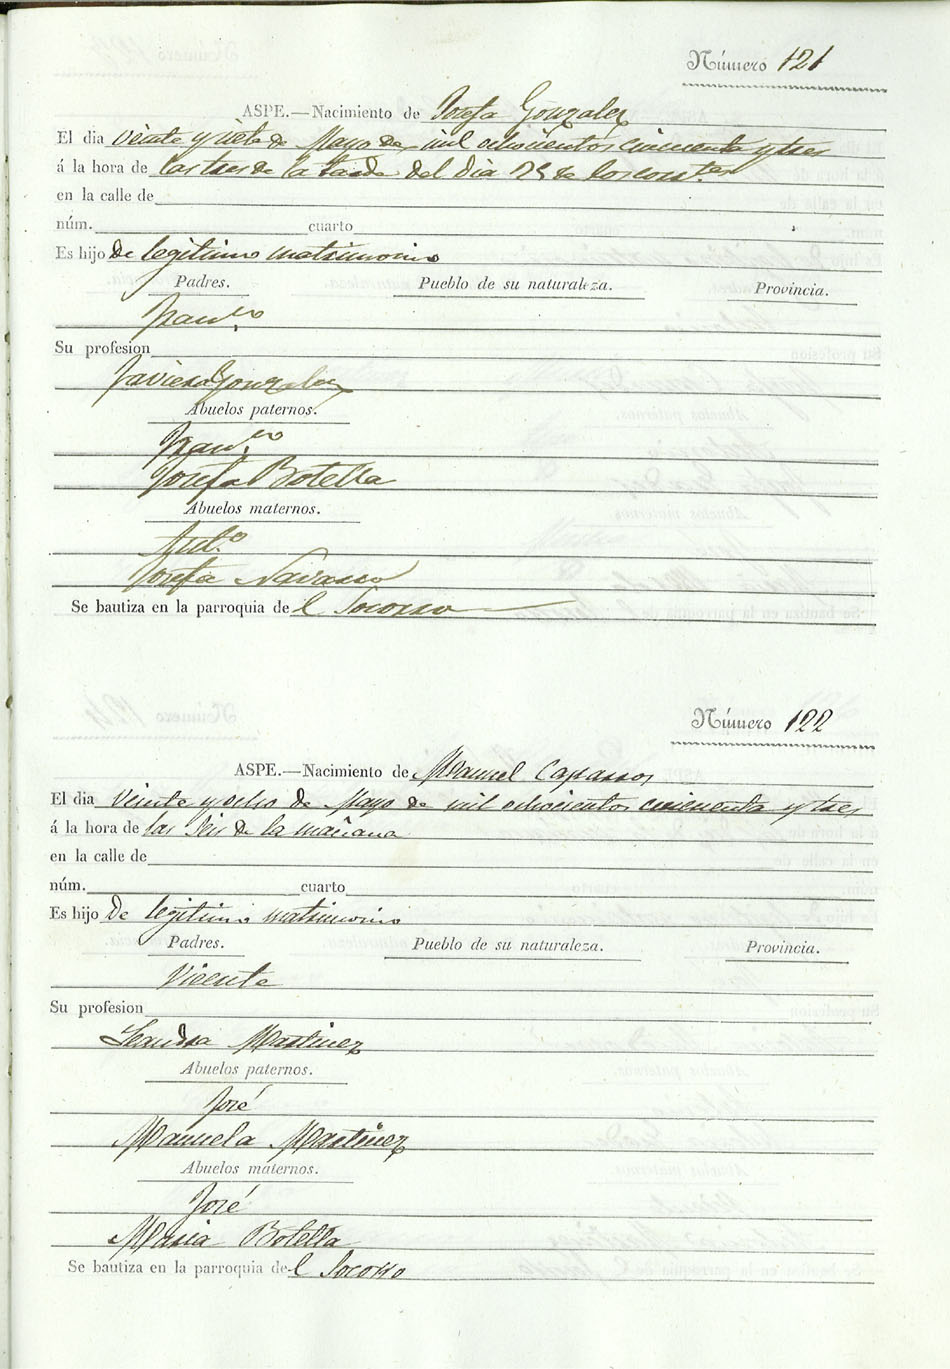 Número 121
ASPE.—Nacimiento de Josefa Gonzalez
El dia veinte y siete de Mayo de mil ochocientos cincuenta y tres
á la hora de las tres de la tarde del dia 25 de los corr.tes
en la calle de
núm. cuarto
Es hijo de legitimo matrimonio
Padres. Pueblo de su naturaleza. Provincia.
Fran.co
Su profesion
Javiera Gonzalez
Abuelos paternos.
Fran.co
Josefa Botella
Abuelos maternos.
Ant.o
Josefa Navarro
Se bautiza en la parroquia de l Socorro
Número 122
ASPE.—Nacimiento de Manuel Caparros
El dia Veinte y ocho de Mayo de mil ochocientos cincuenta y tres
á la hora de las seis de la mañana
en la calle de
núm. cuarto
Es hijo de legitimo matrimonio
Padres. Pueblo de su naturaleza. Provincia.
Vicente
Su profesion
Leandra Martinez
Abuelos paternos.
José
Manuela Martinez
Abuelos maternos.
José
Maria Botella
Se bautiza en la parroquia de l Socorro